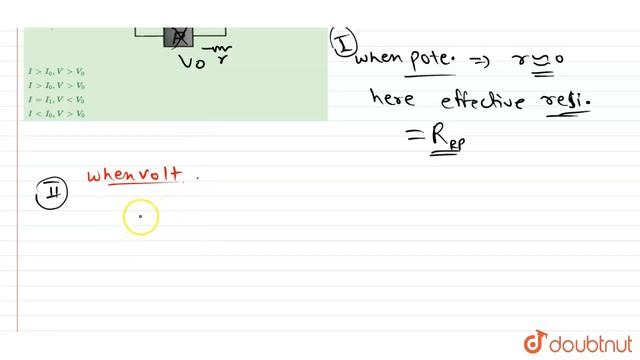 V0
r
I > I₀, V > V₀
I > I₀, V > V₀
I = I₁, V < V₀
I < I₀, V > V₀
I when pote. ⇒ r ≃ 0
here effective resi.
= R_RP
II whenvolt.
doubtnut